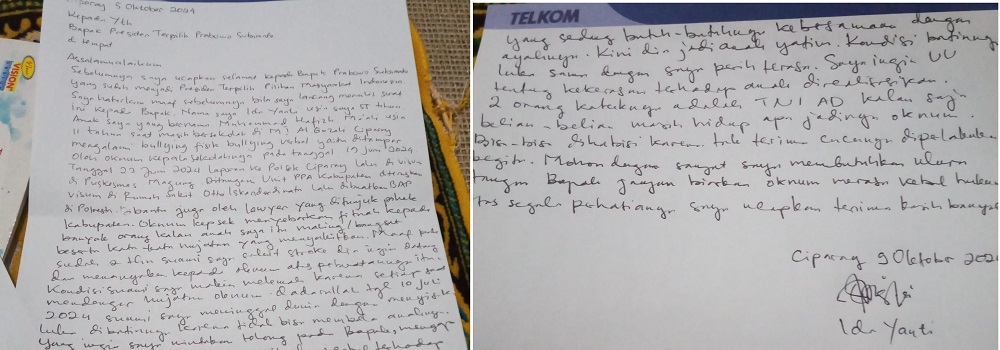 Ciparay 5 Oktober 2024
Kepada Yth
Bapak Presiden Terpilih Prabowo Subianto
di tempat
Assalamualaikum
Sebelumnya saya ucapkan selamat kepada Bapak Prabowo Subianto
yang telah menjadi Presiden Terpilih Pilihan Masyarakat Indonesia
Saya haturkan maaf sebelumnya bila saya lancang menulis surat
ini kepada Bapak. Nama saya Ida Yanti usia saya 51 tahun
Anak saya yang bernama Muhammad Hafizh usia
11 tahun saat masih bersekolah di MI Al Gozali Ciparay
mengalami bullying fisik bullying verbal yaitu ditampar
Oleh oknum kepala sekolahnya pada tanggal 19 Juni 2024
Tanggal 22 Juni 2024 laporan ke Polsek Ciparay lalu di visum
di Puskesmas Magung. Ditangani Unit PPA Kabupaten
visum di Rumah Sakit Otto Iskandardinata lalu dibuatkan BAP
di Polresta. dibantu juga oleh lawyer yang ditunjuk pihak
Kabupaten. Oknum kepsek menyebarkan fitnah kepada
banyak orang kalau anak saya itu maling/bangsat
beserta kata kata hujatan yang menyakitkan.
sudah 2 thn suami saya sakit stroke di ingin datang
dan menanyakan kepada oknum atas perbuatannya itu.
Kondisi suami saya makin melemah karena setiap saat
mendengar hujatan oknum. Qadarullah tgl 10 Juli
2024 suami saya meninggal dunia dengan menyisakan
luka dibatinnya karena tidak bisa membela anaknya.
yang ingin saya mintakan tolong pada Bapak, mengapa
terhadap
TELKOM
yang sedang butuh-butuhnya kebersamaan dengan
ayahnya. Kini dia jadi anak yatim. Kondisi batinnya
luka sama dengan saya perih terasa. Saya ingin UU
tentang kekerasan terhadap anak direalisasikan.
2 orang kakeknya adalah TNI AD kalau saja
beliau-beliau masih hidup apa jadinya oknum.
Bisa-bisa dihabisi karena tak terima cucunya diperlakukan
begitu. Mohon dengan sangat saya membutuhkan uluran
tangan Bapak jangan biarkan oknum merasa kebal hukum
tas segala perhatiannya saya ucapkan terima kasih banyak
Ciparay 9 Oktober 202
Ida Yanti